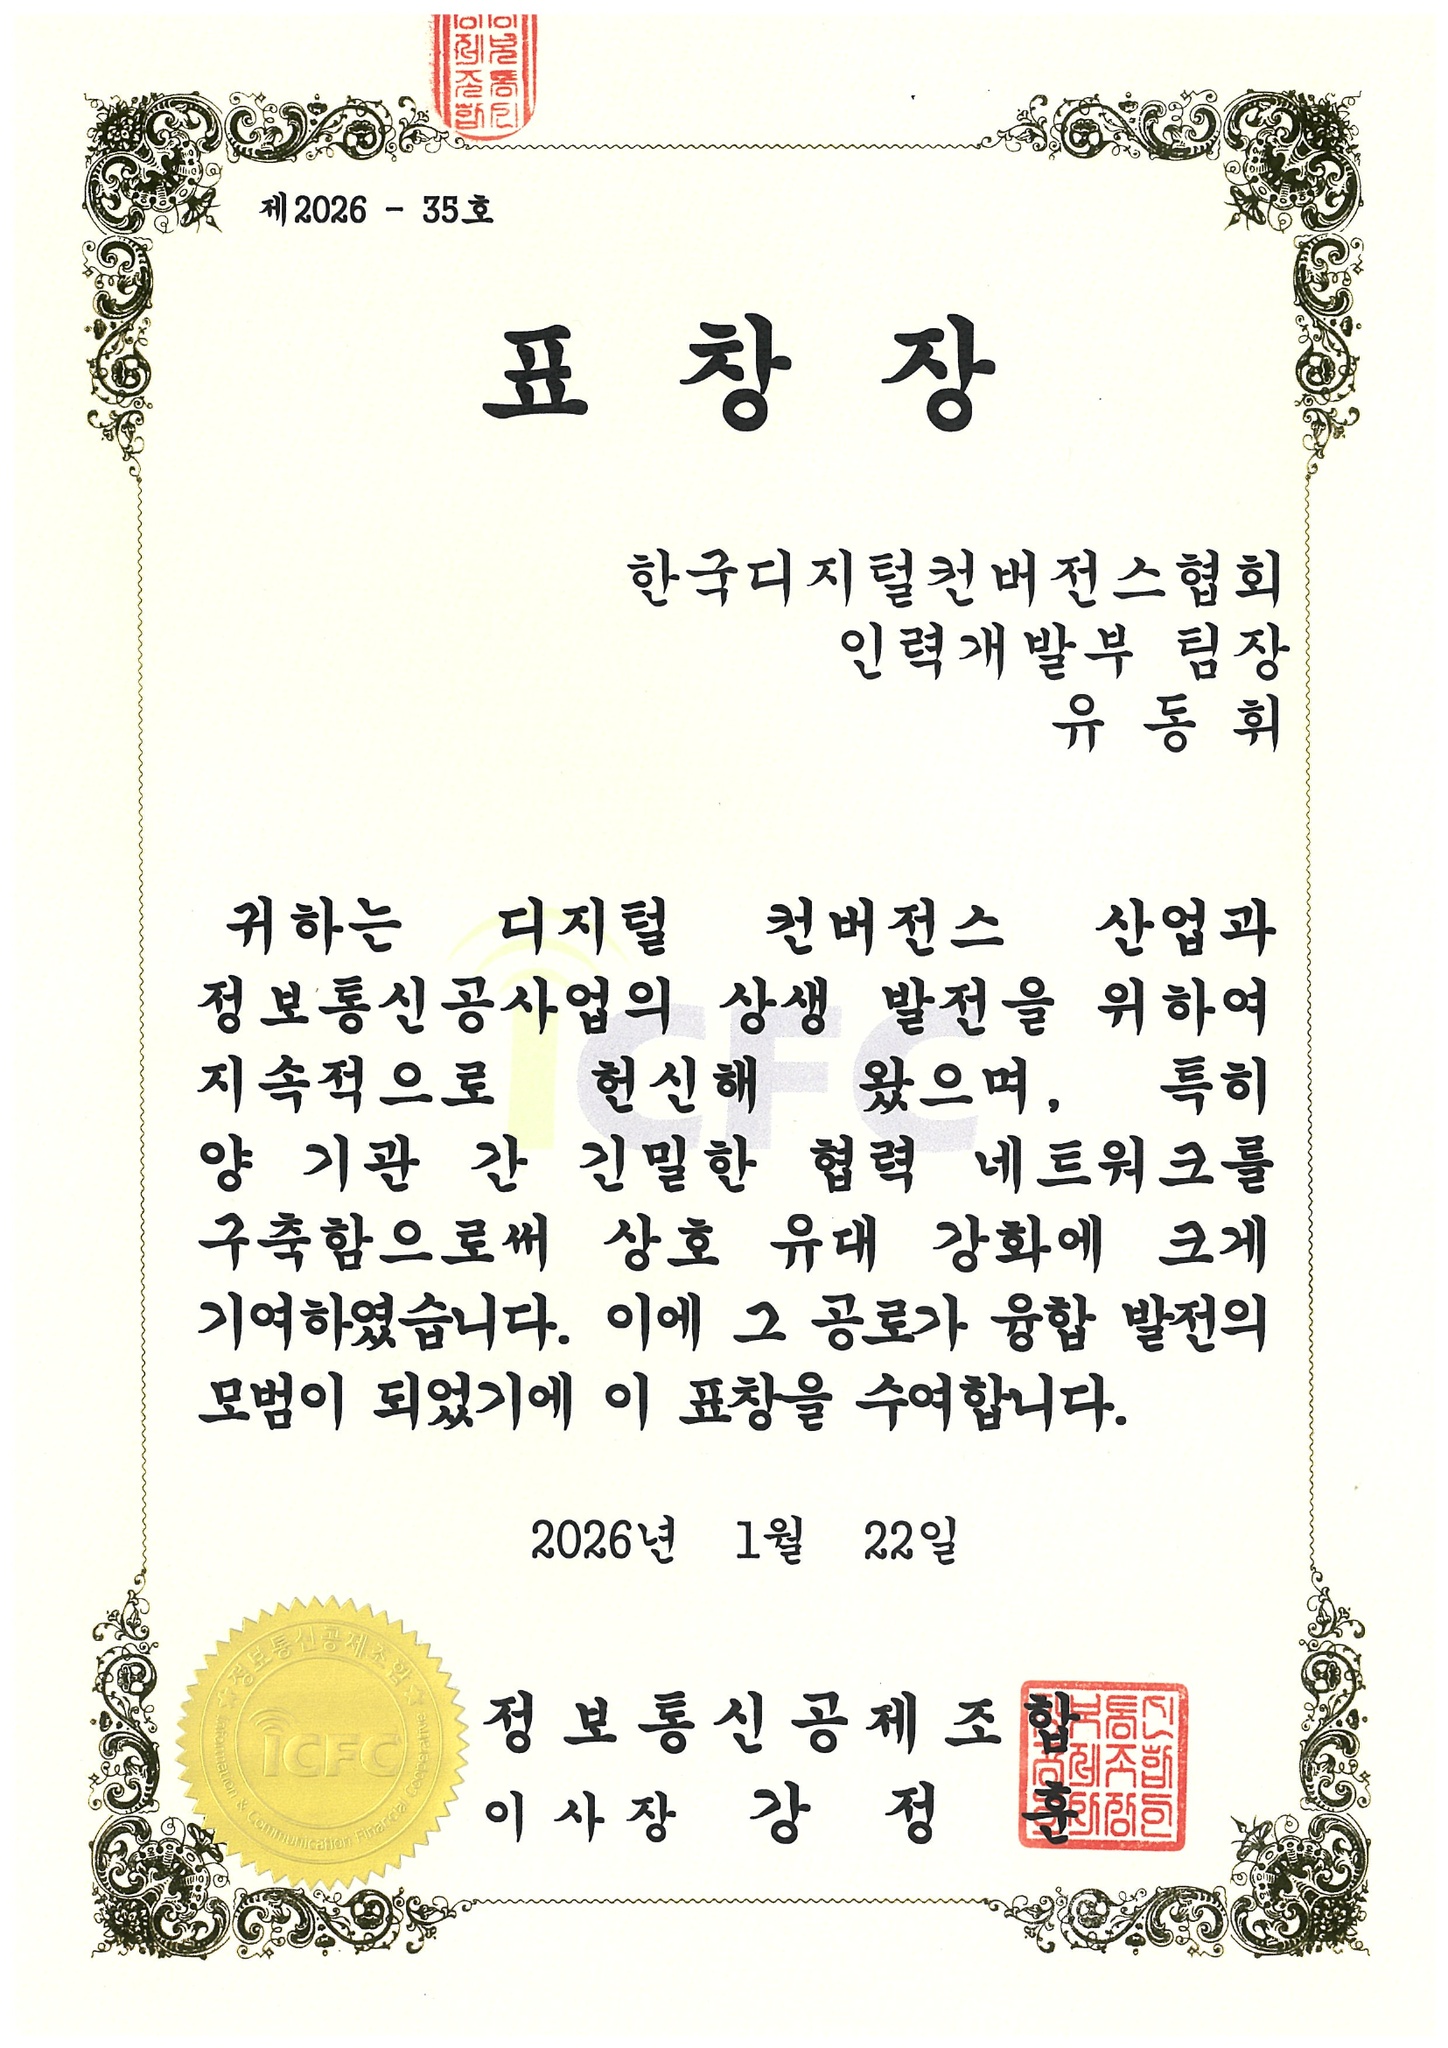 제2026 - 35호
표 창 장
한국디지털컨버전스협회
인력개발부 팀장
유 동 휘
귀하는 디지털 컨버전스 산업과
정보통신공사업의 상생 발전을 위하여
지속적으로 헌신해 왔으며, 특히
양 기관 간 긴밀한 협력 네트워크를
구축함으로써 상호 유대 강화에 크게
기여하였습니다. 이에 그 공로가 융합 발전의
모범이 되었기에 이 표창을 수여합니다.
iCFC
2026년 1월 22일
정보통신공제조합
iCFC
Information & Communication Financial Cooperative
정보통신공제조합
이사장 강 정 훈